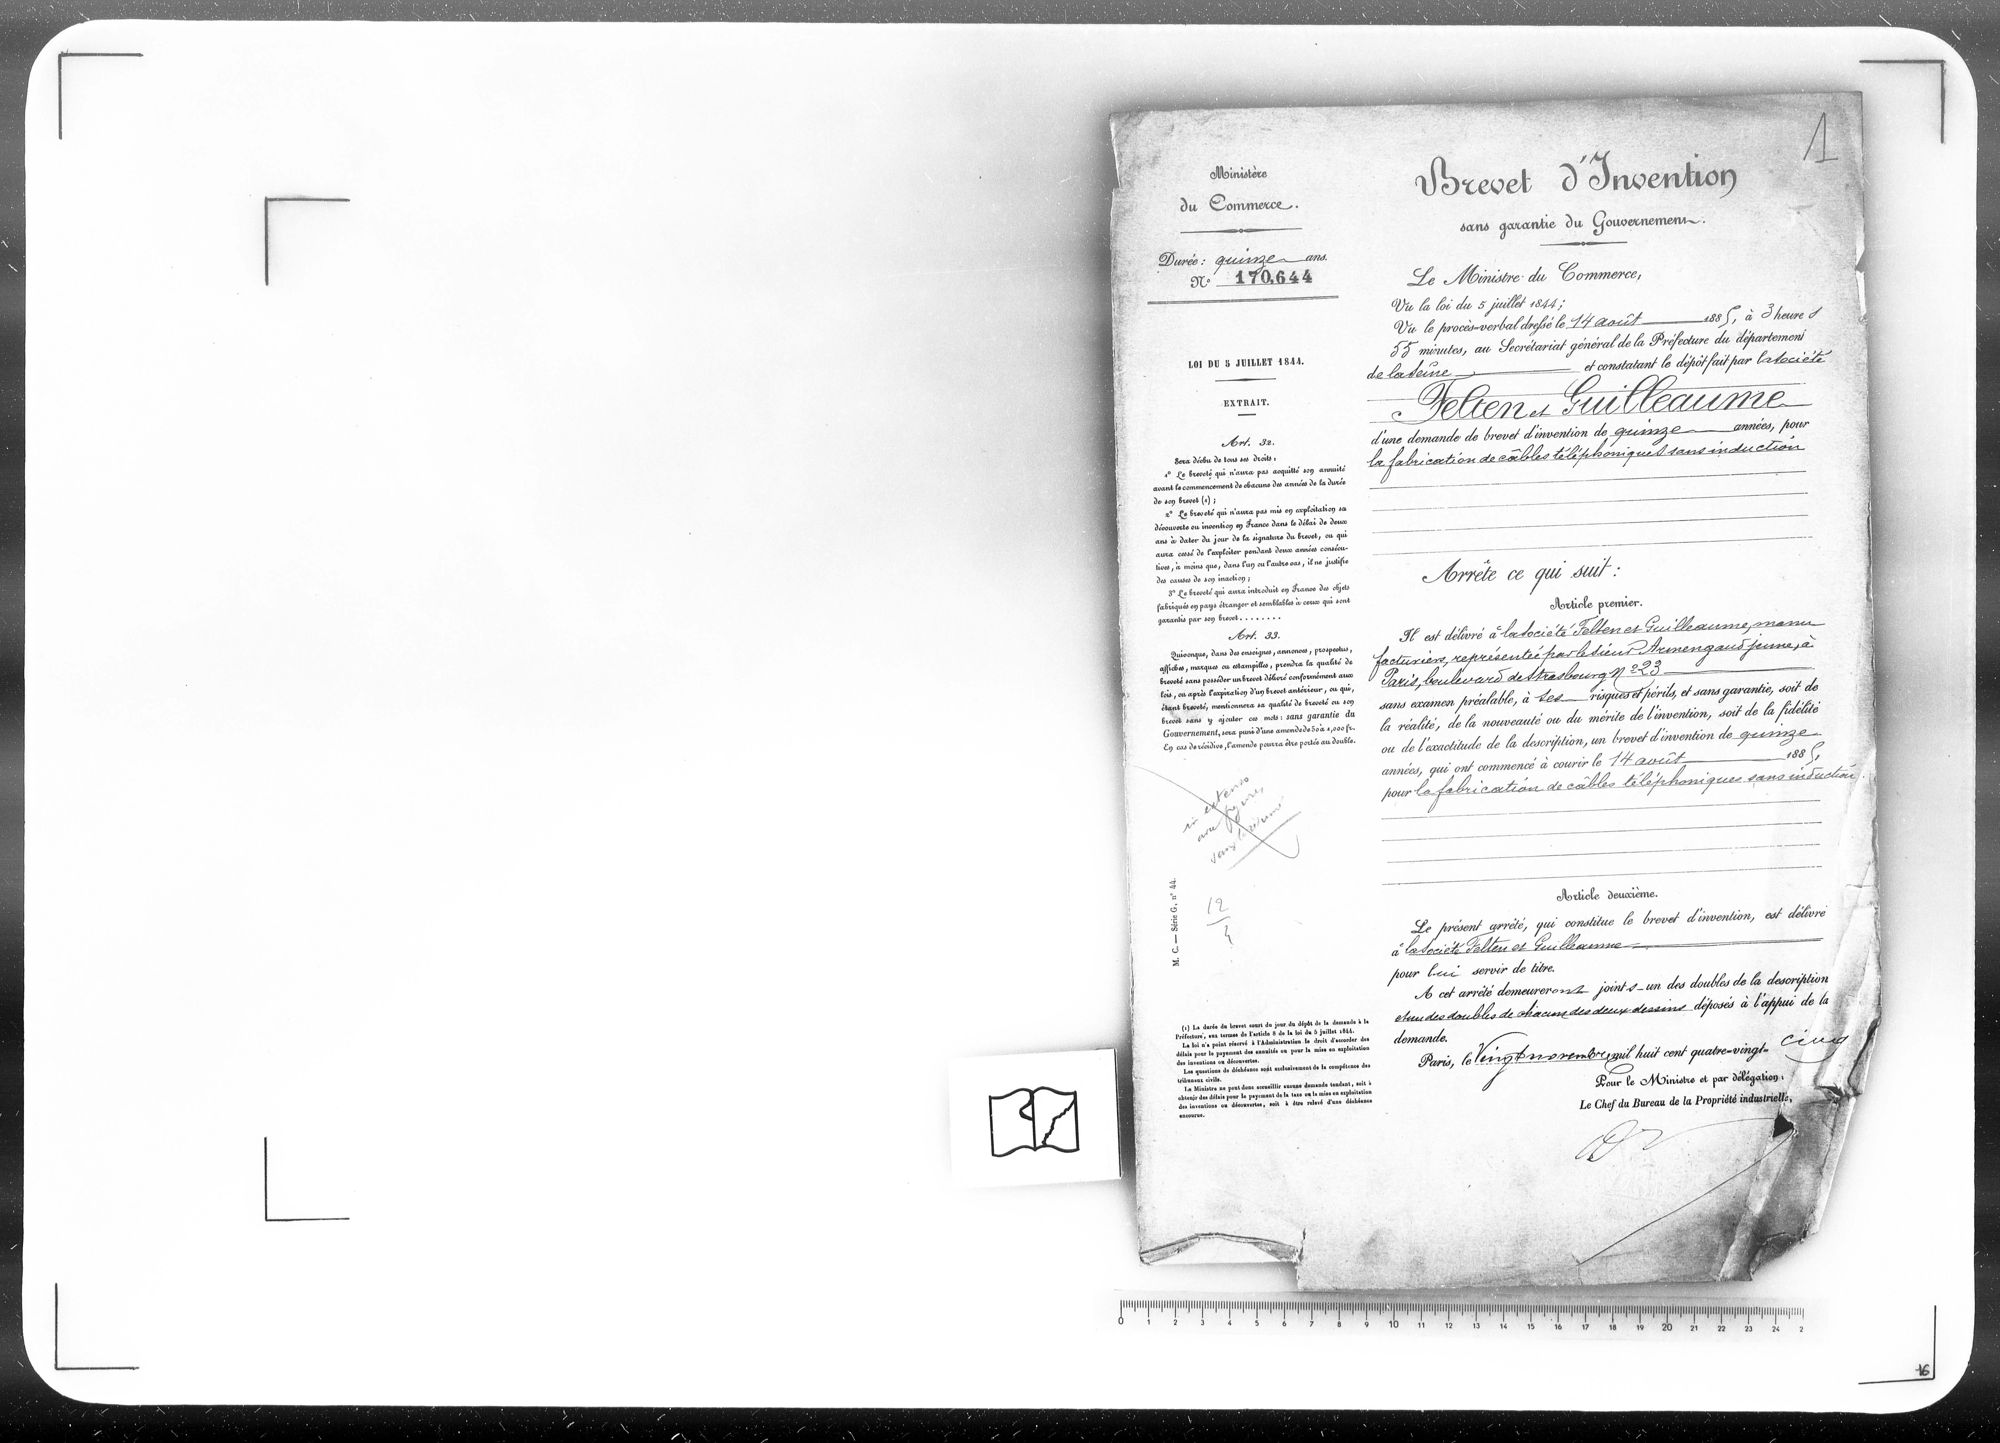 1
Ministère
du Commerce.
Durée: quinze ans.
N° 170.644
LOI DU 5 JUILLET 1844.
EXTRAIT.
Art. 32.
Sera déchu de tous ses droits:
1° Le breveté qui n'aura pas acquitté son annuité
avant le commencement de chacune des années de la durée
de son brevet (1);
2° Le breveté qui n'aura pas mis en exploitation sa
découverte ou invention en France dans le délai de deux
ans à dater du jour de la signature du brevet, ou qui
aura cessé de l'exploiter pendant deux années consécu-
tives, à moins que, dans l'un ou l'autre cas, il ne justifie
des causes de son inaction;
3° Le breveté qui aura introduit en France des objets
fabriqués en pays étranger et semblables à ceux qui sont
garantis par son brevet........
Art. 33.
Quiconque, dans des enseignes, annonces, prospectus,
affiches, marques ou estampilles, prendra la qualité de
breveté sans posséder un brevet délivré conformément aux
lois, ou après l'expiration d'un brevet antérieur, ou qui,
étant breveté, mentionnera sa qualité de breveté ou son
brevet sans y ajouter ces mots: sans garantie du
Gouvernement, sera puni d'une amende de 50 à 1,000 fr.
En cas de récidive, l'amende pourra être portée au double.
in extenso
12
M. C. — Série G, n° 44.
(1) La durée du brevet court du jour du dépôt de la demande à la
Préfecture, aux termes de l'article 8 de la loi du 5 juillet 1844.
La loi n'a point réservé à l'Administration le droit d'accorder des
délais pour le payement des annuités ou pour la mise en exploitation
des inventions ou découvertes.
Les questions de déchéance sont exclusivement de la compétence des
tribunaux civils.
Le Ministre ne peut donc accueillir aucune demande tendant, soit à
obtenir des délais pour le payement de la taxe ou la mise en exploitation
des inventions ou découvertes, soit à être relevé d'une déchéance
encourue.
Brevet d'Invention
sans garantie du Gouvernement.
Le Ministre du Commerce,
Vu la loi du 5 juillet 1844;
Vu le procès-verbal dressé le 14 août 1885, à 3 heures
55 minutes, au Secrétariat général de la Préfecture du département
de la Seine et constatant le dépôt fait par la Société
Felten et Guilleaume
d'une demande de brevet d'invention de quinze années, pour
la fabrication de câbles téléphoniques sans induction
Arrête ce qui suit:
Article premier.
Il est délivré à la Société Felten et Guilleaume, manu
facturiers, représentée par le sieur Armengaud jeune, à
Paris, boulevard de Strasbourg n° 23
sans examen préalable, à ses risques et périls, et sans garantie, soit de
la réalité, de la nouveauté ou du mérite de l'invention, soit de la fidélité
ou de l'exactitude de la description, un brevet d'invention de quinze
années, qui ont commencé à courir le 14 août 1885,
pour la fabrication de câbles téléphoniques sans induction.
Article deuxième.
Le présent arrêté, qui constitue le brevet d'invention, est délivré
à la Société Felten et Guilleaume
pour lui servir de titre.
A cet arrêté demeureront joints un des doubles de la description
et un des doubles de chacun des deux dessins déposés à l'appui de la
demande.
Paris, le Vingt novembre mil huit cent quatre-vingt-cinq
Pour le Ministre et par délégation:
Le Chef du Bureau de la Propriété industrielle,
0 1 2 3 4 5 6 7 8 9 10 11 12 13 14 15 16 17 18 19 20 21 22 23 24 2
16